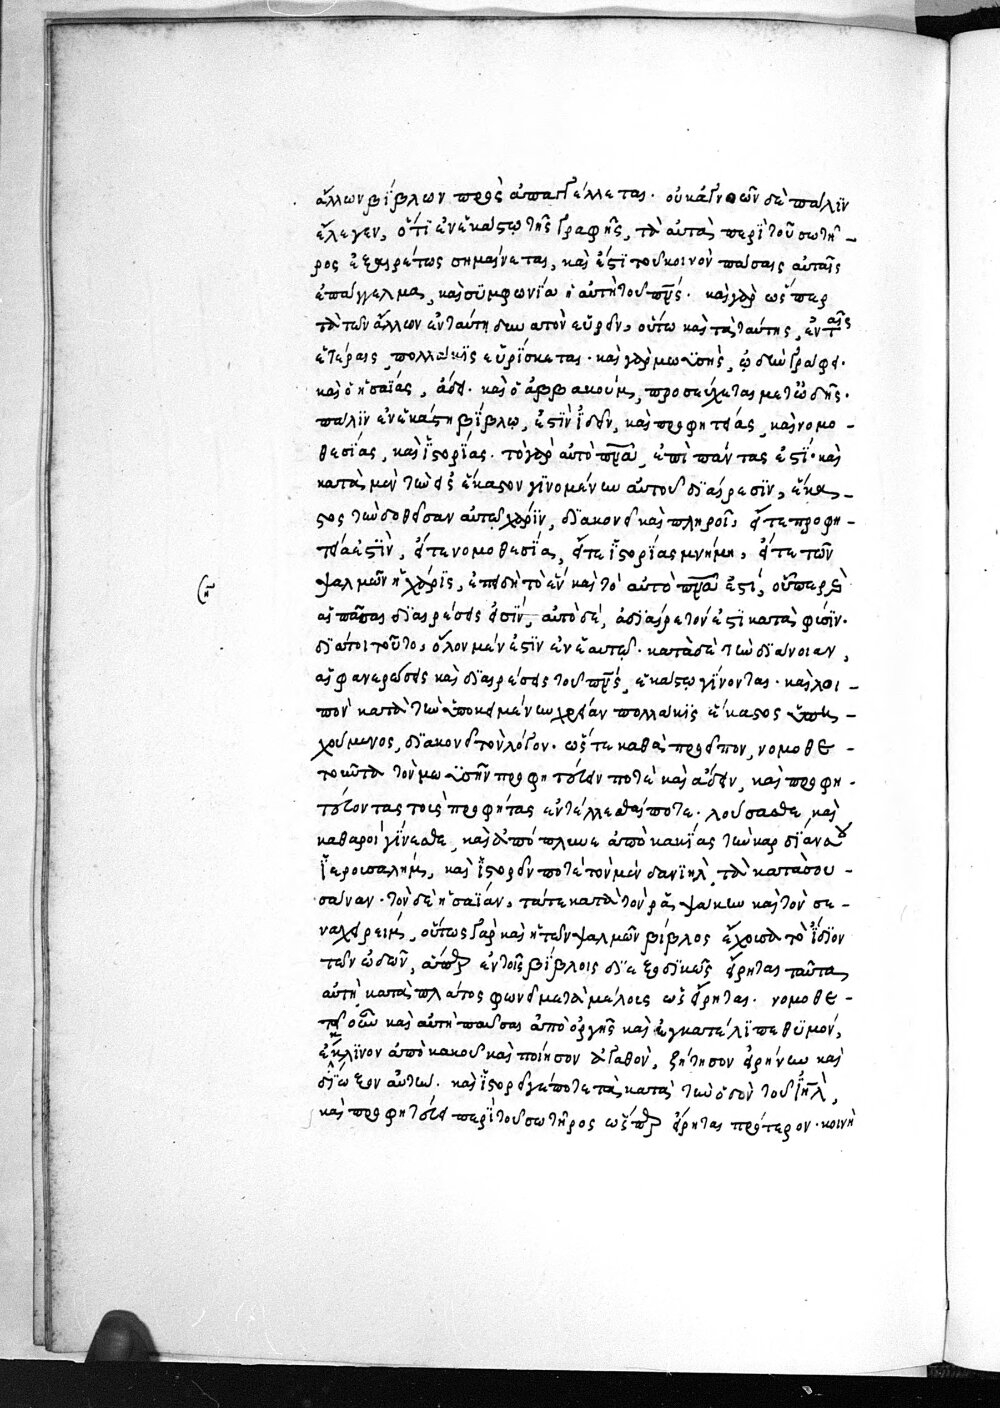 ἄλλων βίβλων πρὸς ἀπαγγέλλεται. οὐκ ἀγνοῶν δὲ πάλϊν
ἔλεγεν, ὅτϊ ἐν ἑκάστῳ τῆς γραφῆς, τὰ αὐτὰ περϊ τοῦ σωτῆ-
ρος ἐξαιρέτως σημαίνεται, καὶ ἐστϊ τοῦ κοινὸν πάσαις αὐταῖς
ἐπάγγελμα, καὶ σϋμφωνϊα ἡ αὐτὴ τοῦ πν̅ς. καὶ γὰρ ὥσπερ
τὰ τῶν ἄλλων ἐν ταύτη δυνατὸν εὑρεῖν, οὕτω καὶ τὰ ταύτης, ἐν ταῖς
ἑτέραις, πολλάκϊς εὑρϊσκεται. καὶ γὰρ μωϋσῆς, ὠδὴν γράφει.
καὶ ὁ ἡσαΐας, ἄδει. καὶ ὁ ἀββακοὺμ, προσεύχεται μετ ὠδῆς.
πάλϊν ἐν ἑκάστη βϊβλω, ἐστϊν ἰδεῖν, καὶ προφητείας, καὶ νομο-
θεσίας, καὶ ἱστορϊας. τὸ γὰρ αὐτὸ πν̅α, ἐπὶ πάντας ἐστϊ. καὶ
κατὰ μὲν τὴν εἰς ἕκαστον γϊνομένην αὐτοῦ δϊαίρεσϊν, ἕκα-
στος τὴν δοθεῖσαν αὐτῷ χάρϊν, δϊακονεῖ καὶ πληροῖ, εἴτε προφη-
τεία ἐστϊν, εἴτε νομοθεσϊα, εἴτε ἱστορϊας μνήμη, εἴτε τῶν
ψαλμῶν ἡ χάρϊς, ἐπειδὴ τὸ ἓν καὶ τὸ αὐτὸ πν̅α ἐστί, οὗπερ
αἱ πᾶσαι δϊαιρέσεις εἰσϊν, αὐτὸ δέ, ἀδϊαίρετόν ἐστϊ κατὰ φύσϊν.
δϊά τοι τοῦτο, ὅλον μέν ἐστϊν ἐν ἑαυτῷ. κατὰ δὲ τὴν δϊάνοιαν,
αἱ φανερώσεις καὶ δϊαιρέσεις τοῦ πν̅ς, ἑκάστω γϊνονται. καὶ λοι-
πὸν κατὰ τὴν ὑποκειμένην χρείαν πολλάκϊς ἕκαστος ὑπη-
χούμενος, δϊακονεῖ τὸν λόγον. ὥστε καθὰ προεῖπον, νομοθε-
τοῦντα τὸν μωϋσῆν προφητεύειν ποτὲ καὶ ἄδειν, καὶ προφη-
τεύοντας τοὺς προφήτας ἐντέλλεσθαί ποτε. λούσασθε, καὶ
καθαροὶ γίνεσθε, καὶ ἀπόπλυνε ἀπὸ κακίας τὴν καρδϊαν σου
ἱερουσαλήμ, καὶ ἱστορεῖν ποτὲ τὸν μὲν δανϊὴλ, τὰ κατὰ σου-
σάναν. τὸν δὲ ἡσαϊαν, τά τε κατὰ τὸν ῥαψάκην καὶ τὸν σε-
ναχειρείμ, οὕτως γὰρ καὶ ἡ τῶν ψαλμῶν βίβλος ἔχουσα τὸ ἴδϊον
τῶν ὠδῶν, ἅπερ ἐν τοῖς βϊβλοις δϊεξοδϊκῶς εἴρηται ταῦτα
αὐτὴ κατὰ πλάτος φωνεῖ μετὰ μέλους ὡς εἴρηται. νομοθε-
τεῖ οὖν καὶ αὐτὴ παῦσαι ἀπὸ ὀργῆς καὶ ἐγκατέλϊπε θϋμόν,
ἔκκλϊνον ἀπὸ κακοῦ καὶ ποίησον ἀγαθὸν, ζήτησον εἰρήνην καὶ
δίωξον αὐτήν. καὶ ἱστορεῖ γέ ποτε τὰ κατὰ τὴν ὁδὸν τοῦ ἰη̅λ,
καὶ προφητεύει περϊ τοῦ σωτῆρος ὥσπερ εἴρηται πρότερον. κοινὴ